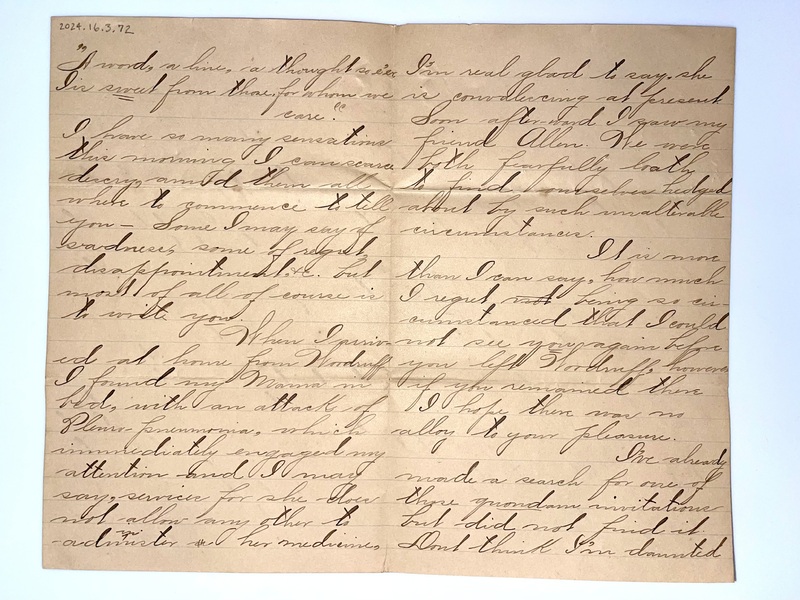 2024.16.3.72
"A word, a line, a thought so e'er
Is sweet from those, for whom we
care."
I have so many sensations
this morning I can scarce
descry, amid them all
where to commence to tell
you— Some I may say of
sadness, some of regret,
disappointment, &c. but
most of all of course is
to write you.
When I arriv-
ed at home from Woodruff
I found my Mama in
bed, with an attack of
Pleuro-pneumonia, which
immediately engaged my
attention and I may
say, services for she does
not allow any other to
administer her medicine,
I'm real glad to say, she
is convalescing at present
Soon after-ward I saw my
friend Allen. We were
both fearfully loath
to find ourselves hedged
about by such unalterable
circumstances.
It is more
than I can say, how much
I regret not being so cir-
cumstanced that I could
not see you again before
you left Woodruff, however
if you remained there
I hope there was no
alloy to your pleasure.
I've already
made a search for one of
those quondam invitations
but did not find it.
Dont think I'm daunted